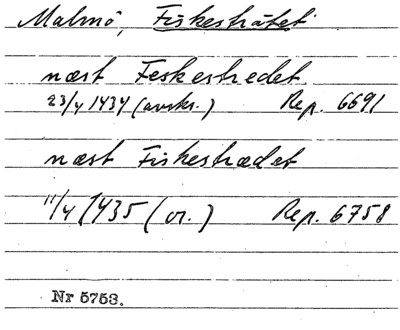 Malmö, Fiskesträtet
næst Feskestredet
23/4 1434 (avskr.) Rep. 6691
næst Fiskestrædet
11/4 1435 (or.) Rep. 6758
Nr 5753.